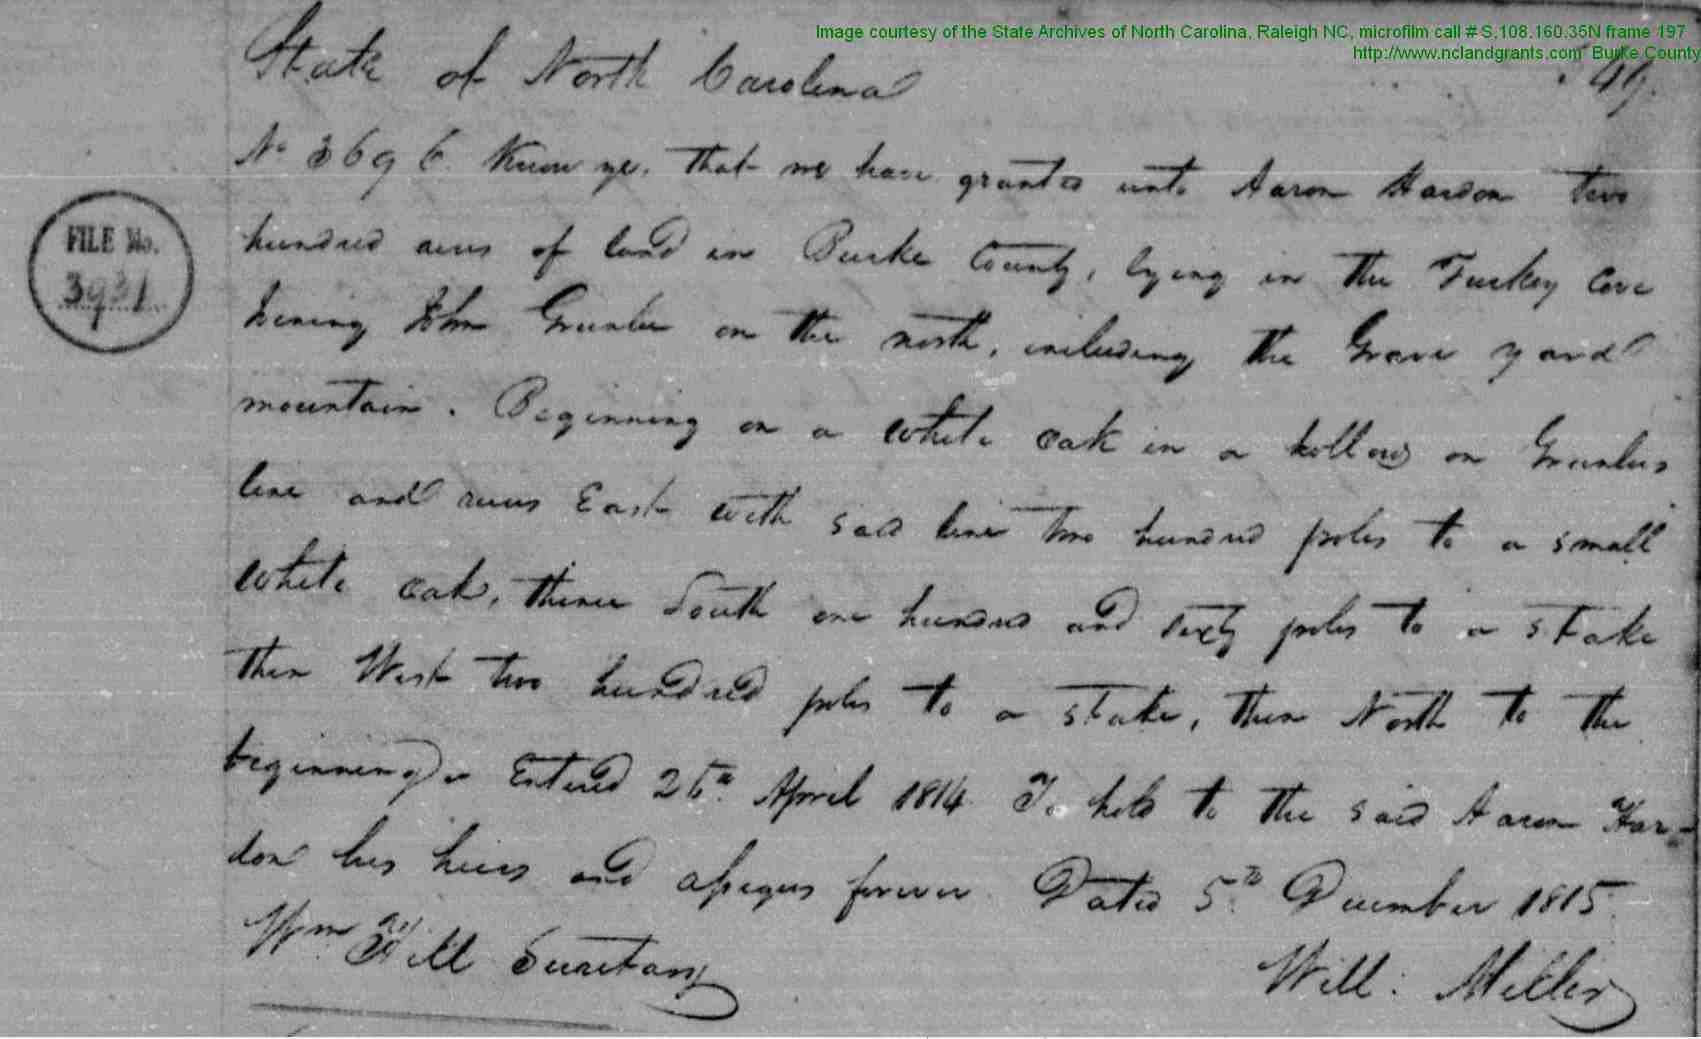 Image courtesy of the State Archives of North Carolina, Raleigh NC, microfilm call # S.108.160.35N frame 197
http://www.nclandgrants.com Burke County
State of North Carolina 49.
No 3696. Know ye, that we have granted unto Aaron Hardon two
hundred acres of land in Burke County, lying in the Turkey Cove
Joining John Greenlee on the north, including the Grave yard
mountain. Beginning on a white oak in a hollow on Greenlees
line and runs East with said line two hundred poles to a small
white oak, thence South one hundred and sixty poles to a stake
then West two hundred poles to a stake, then North to the
beginning. Entered 26th April 1814. To hold to the said Aaron Har-
don his heirs and assigns forever. Dated 5th December 1815.
Wm Hill Secretary Will: Miller
FILE No.
3931